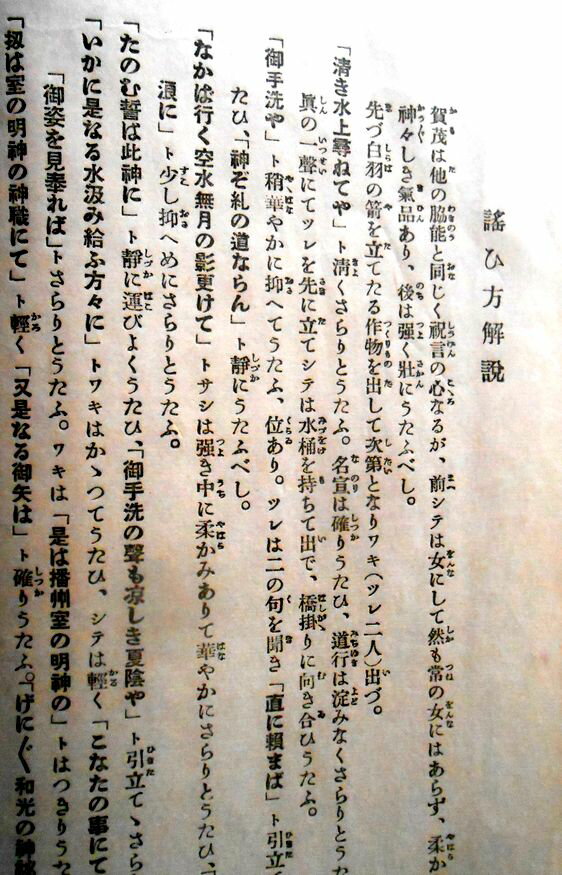 謠ひ方解說
賀茂は他の脇能と同じく祝言の心なるが、前シテは女にして然も常の女にはあらず、柔か
神々しき氣品あり、後は强く壯にうたふべし。
先づ白羽の箭を立てたる作物を出して次第となりワキ(ツレ二人)出づ。
「清き水上尋ねてや」ト清くさらりとうたふ。名宣は確りうたひ、道行は淀みなくさらりとうた
眞の一聲にてツレを先に立てシテは水桶を持ちて出で、橋掛りに向き合ひうたふ。
「御手洗や」ト稍華やかに抑へてうたふ、位あり。ツレは二の句を聞き「直に賴まば」ト引立て
たひ、「神ぞ糺の道ならん」ト靜にうたふべし。
「なかば行く空水無月の影更けて」トサシは强き中に柔かみありて華やかにさらりとうたひ、「
濵に」ト少し抑へめにさらりとうたふ。
「たのむ誓は此神に」ト靜に運びよくうたひ、「御手洗の聲も凉しき夏陰や」ト引立てゝさら
「いかに是なる水汲み給ふ方々に」トワキはかゝつてうたひ、シテは輕く「こなたの事にて
「御姿を見奉れば」トさらりとうたふ。ワキは「是は播州室の明神の」トはつきりうた
「扨は室の明神の神職にて」ト輕く「又是なる御矢は」ト確りうたふ。「げに〲和光の神